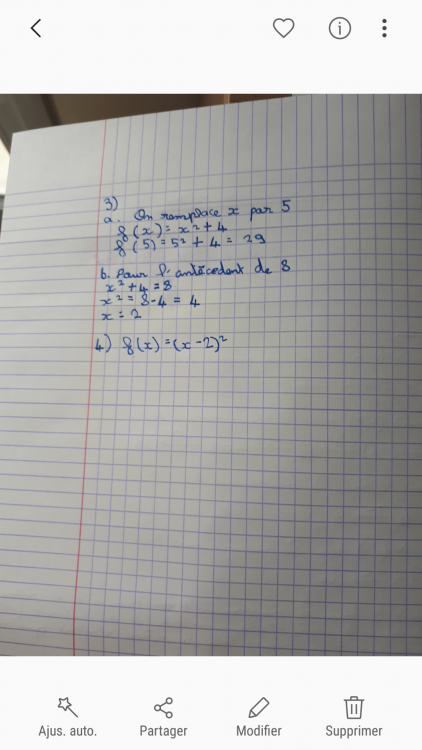 3)
a. On remplace x par 5
f(x) = x² + 4
f(5) = 5² + 4 = 29
b. Pour l'antécédent de 8
x² + 4 = 8
x² = 8 - 4 = 4
x = 2
4) f(x) = (x - 2)²
Ajus. auto.
Partager
Modifier
Supprimer